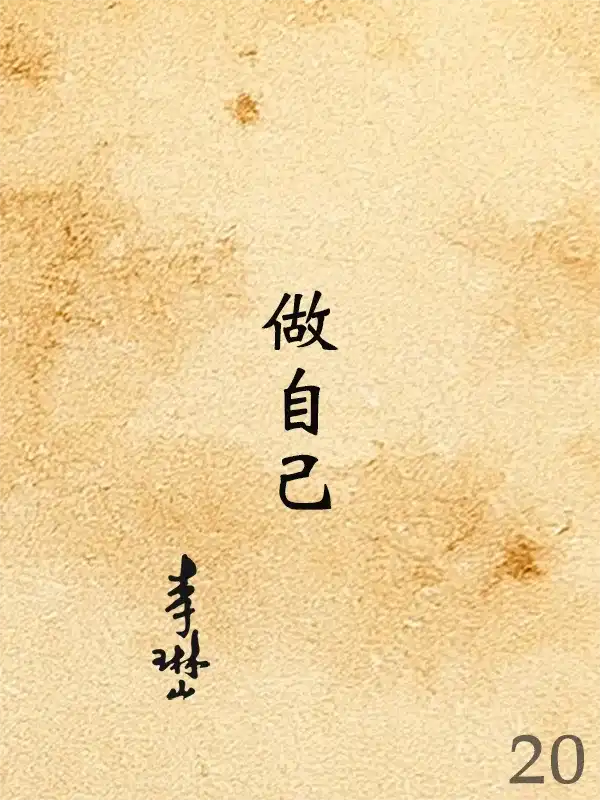 做自己
李琳山
20